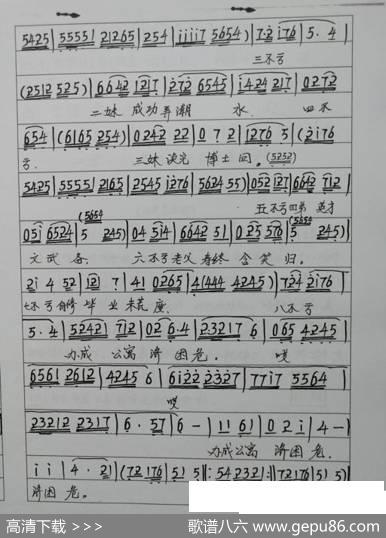 5425 | 5555 1 21265 | 254 | iiii7 5654) | 72 i76 | 5. 4 |
三不亏
(2512 525) | 6642 1217 | 272 6545 | i424 217 | 0272
二妹 成功弄潮 水. 四不
654 | (6165 254) | 02422 22 | 0 7 2 | 1276 5 | (2i76
亏. 三妹 博士 回。(5252)
5425 | 5555 1 2165 | 2545 i276 | 5624 55) | 052 127 | 6642 712 |
五不亏四弟 英才
05i 6524 | 5 245) | 04 514 | 6642 51 | 025 576 | 5 245) |
文武 备. 六不亏老父寿终 含笑 归。
2i 4 52 | 12 7 | 41 0265 | 4(444 4245) | 724 2i76 |
七不亏 毕业 八不亏
5. 4 | 5242 712 | 02 6.4 | 23217 6 | 065 4245 |
办成 公寓 济 困 危。 嗳
6561 2612 | 4245 6 | 6i22 2327 | 77i7 5564 |
嗳
23212 2317 | 6. 57 | 6 - | 11 61 | 0 2 i | 4 - |
办成公寓 济困 危.
i i | 4. 21 | (72 176 | 51 5 |: 54 232 :| 72176 | 51 5)
济困 危。
高清下载 >>>
歌谱八六 www.gepu86.com